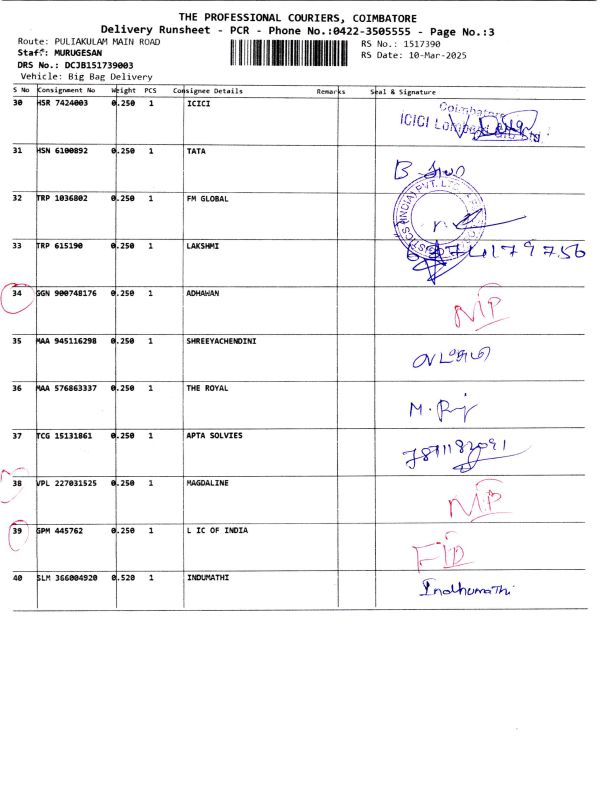 THE PROFESSIONAL COURIERS, COIMBATORE
Delivery Runsheet - PCR - Phone No.:0422-3505555 - Page No.:3
Route: PULIAKULAM MAIN ROAD
RS No.: 1517390
Staff: MURUGESAN
RS Date: 10-Mar-2025
DRS No.: DCJB151739003
Vehicle: Big Bag Delivery
S No Consignment No Weight PCS Consignee Details Remarks Seal & Signature
30 HSR 7424003 0.250 1 ICICI
Coimbatore
ICICI Lombard
31 HSN 6100892 0.250 1 TATA
32 TRP 1036802 0.250 1 FM GLOBAL
(INDIA) PVT. LTD
33 TRP 615190 0.250 1 LAKSHMI
34 GGN 900748176 0.250 1 ADHAWAN
35 MAA 945116298 0.250 1 SHREEYACHENDINI
36 MAA 576863337 0.250 1 THE ROYAL
M.
37 TCG 15131861 0.250 1 APTA SOLVIES
38 VPL 227031525 0.250 1 MAGDALINE
39 GPM 445762 0.250 1 L IC OF INDIA
40 SLM 366004920 0.520 1 INDUMATHI
Indhumathi